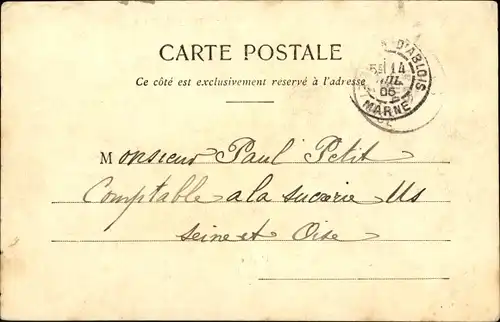 CARTE POSTALE
Ce côté est exclusivement réservé à l'adresse
D'ABLOIS
14
05
MARNE
Monsieur Paul Petit
Comptable a la sucrerie Us
Seine et Oise